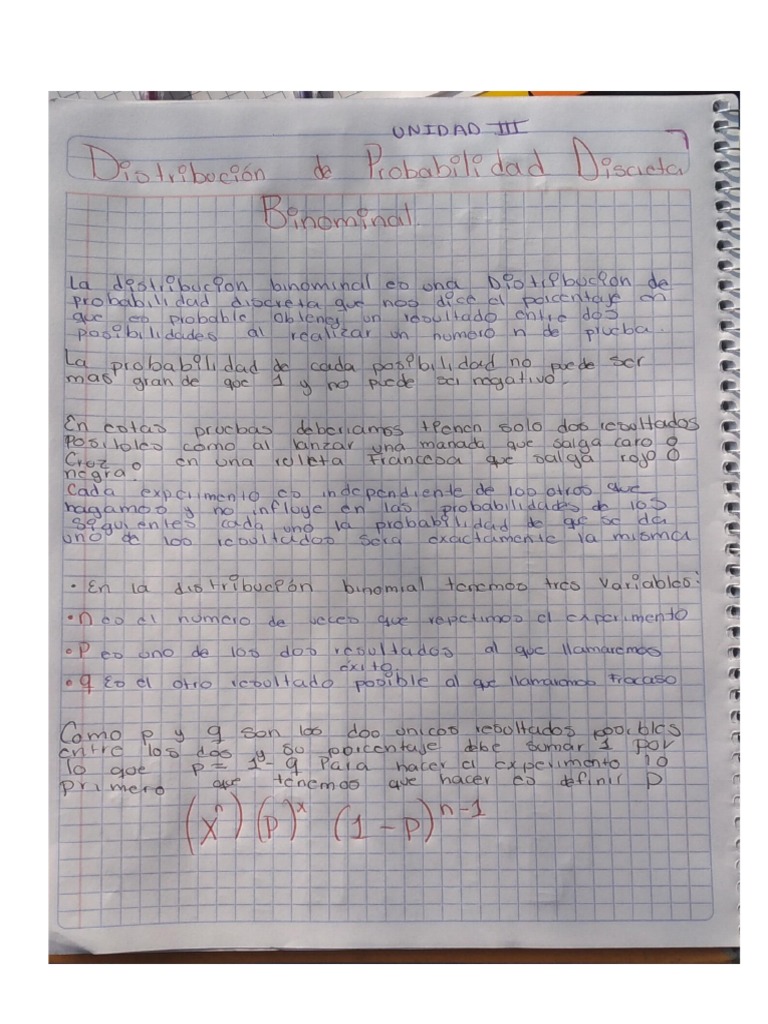 UNIDAD III
Distribución de Probabilidad Discreta
Binominal.
La distribucion binominal es una Distribucion de
probabilidad discreta que nos dice el porcentaje en
que es probable obtener un resultado entre dos
posibilidades al realizar un numero n de prueba.
La probabilidad de cada posibilidad no puede ser
mas grande que 1 y no puede ser negativo.
En estas pruebas deberiamos tienen solo dos resultados
Posibles como al lanzar una manada que salga caro o
Cruz o en una roleta francesa que salga rojo o
negra.
Cada experimento es independiente de los otros que
hagamos y no influye en las probabilidades de los
siguientes cada uno la probabilidad de que se de
uno de los resultados sera exactamente la misma
• En la distribución binomial tenemos tres variables:
• n es el numero de veces que repetimos el experimento
• P es uno de los dos resultados al que llamaremos
éxito.
• q Es el otro resultado posible al que llamaremos fracaso
Como p y q son los dos unicos resultados posibles
entre los dos y su porcentaje debe sumar 1 por
lo que p = 1 - q Para hacer el experimento lo
primero que tenemos que hacer es definir P
(xⁿ) (p)ˣ (1 - p)ⁿ⁻¹